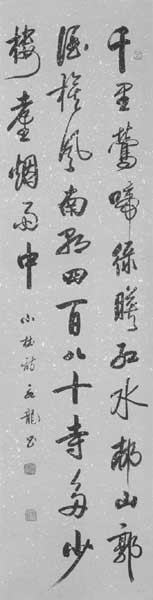 千里鶯啼綠映紅水邨山郭
酒旗風南朝四百八十寺多少
樓臺烟雨中
小杜詩 龍书